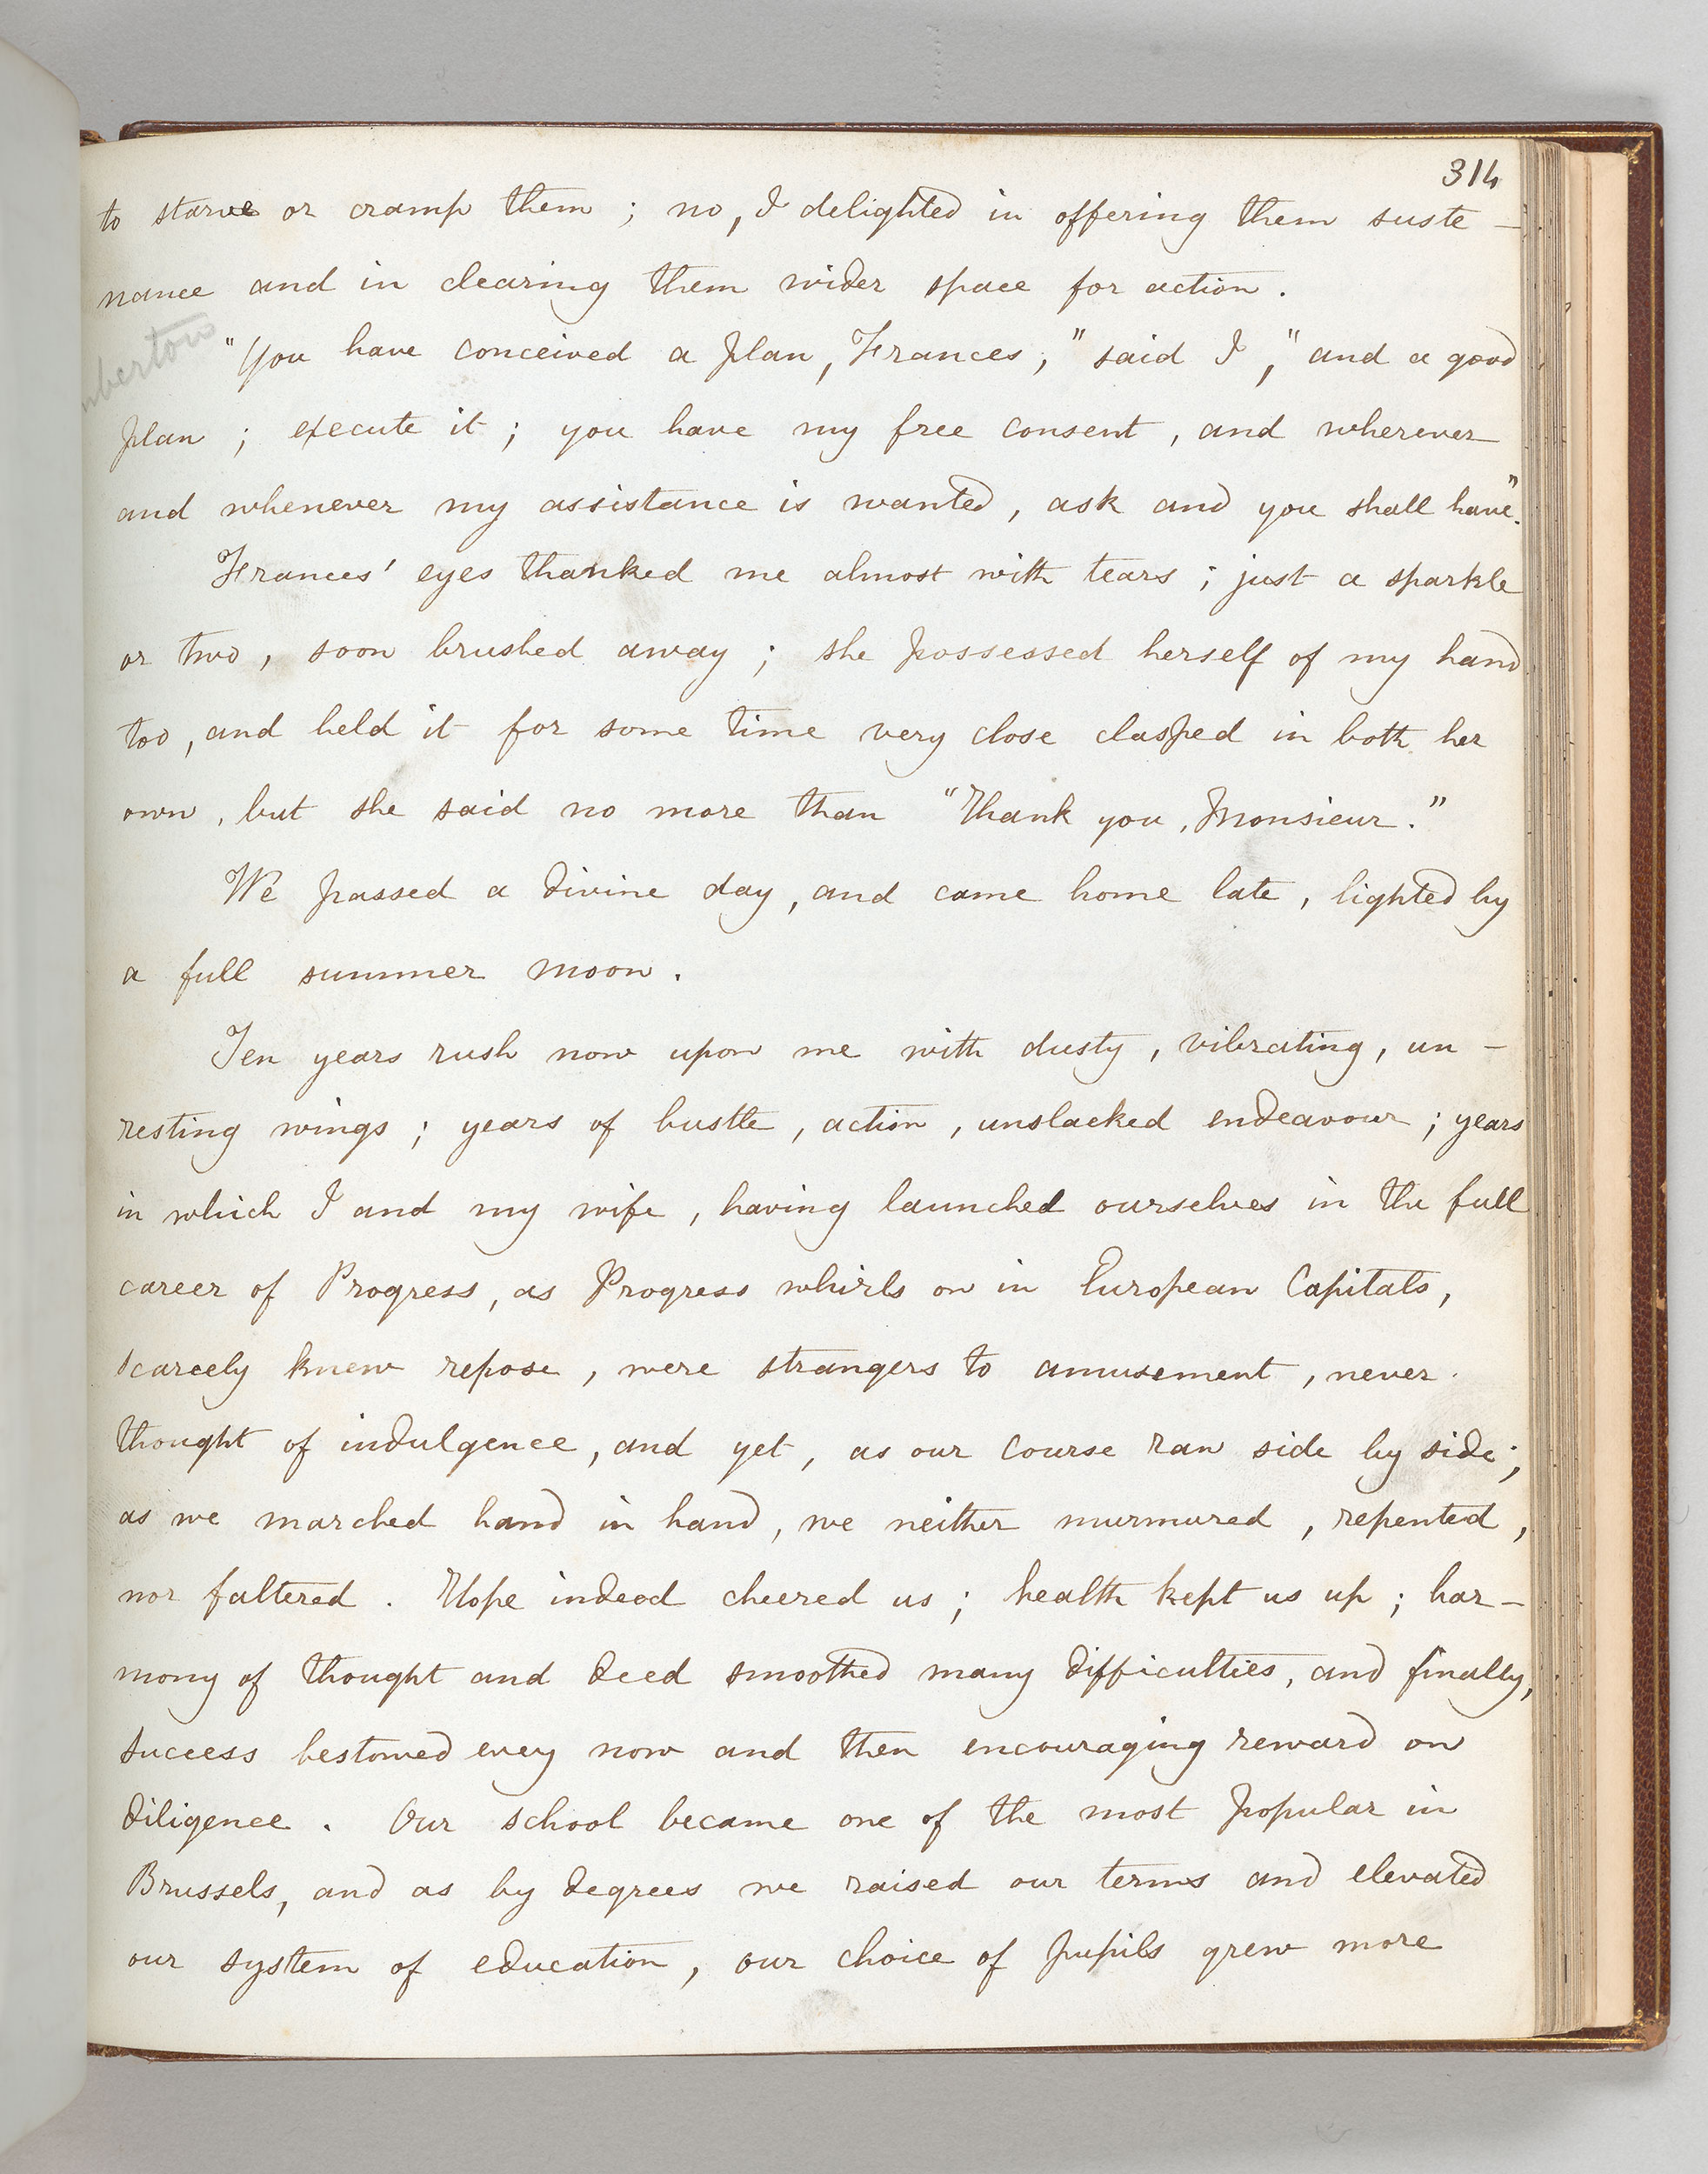 314
to starve or cramp them ; no, I delighted in offering them suste -
nance and in clearing them wider space for action .
"You have conceived a plan, Frances," said I, "and a good
plan ; execute it ; you have my free consent , and wherever
and whenever my assistance is wanted, ask and you shall have."
Frances' eyes thanked me almost with tears ; just a sparkle
or two, soon brushed away ; she possessed herself of my hand
too, and held it for some time very close clasped in both her
own, but she said no more than "Thank you, Monsieur."
We passed a divine day, and came home late, lighted by
a full summer moon.
Ten years rush now upon me with dusty, vibrating, un -
resting wings ; years of bustle, action, unslacked endeavour ; years
in which I and my wife, having launched ourselves in the full
career of Progress, as Progress whirls on in European Capitals,
scarcely knew repose, were strangers to amusement, never
thought of indulgence, and yet, as our course ran side by side ;
as we marched hand in hand, we neither murmured, repented,
nor faltered. Hope indeed cheered us ; health kept us up ; har -
mony of thought and deed smoothed many difficulties, and finally,
success bestowed every now and then encouraging reward on
diligence. Our school became one of the most popular in
Brussels, and as by degrees we raised our terms and elevated
our system of education, our choice of pupils grew more